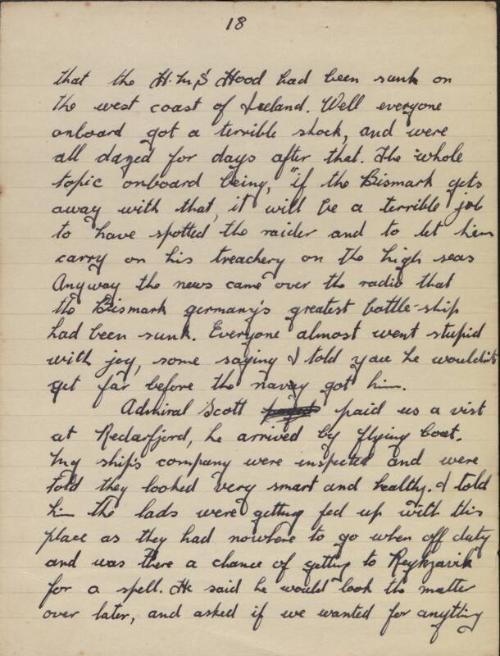 18
that the H.M.S Hood had been sunk on
the west coast of Iceland. Well everyone
onboard got a terrible shock, and were
all dazed for days after that. The whole
topic onboard being, "if the Bismark gets
away with that, it will be a terrible job
to have spotted the raider and to let him
carry on his treachery on the high seas
Anyway the news came over the radio that
the Bismark germany's greatest battle-ship
had been sunk. Everyone almost went stupid
with joy, some saying I told you he wouldn't
get far before the navy got him.
Admiral Scott paid us a vist
at Redarfjord, he arrived by flying boat.
My ship's company were inspected and were
told they looked very smart and healthy. I told
him the lads were getting fed up with this
place as they had nowhere to go when off duty
and was there a chance of getting to Reykjavik
for a spell. He said he would look the matter
over later, and asked if we wanted for anything